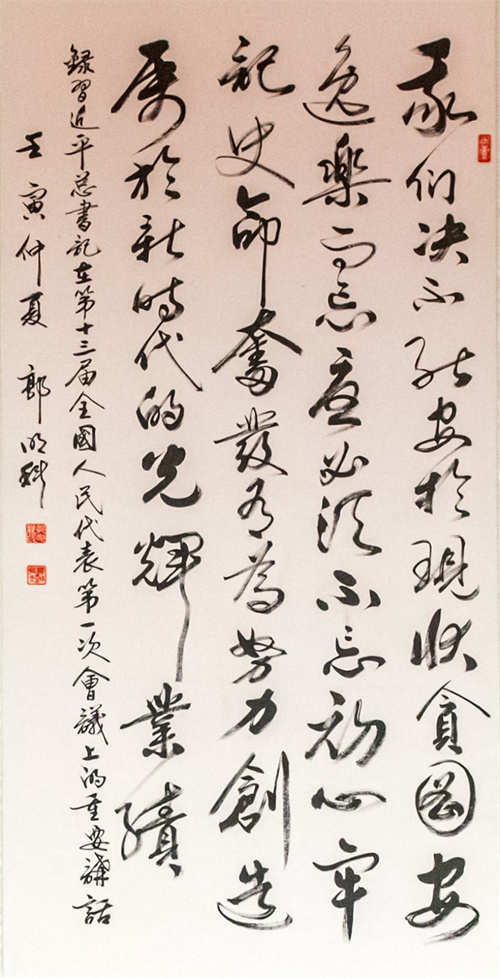 我们决不能安於現狀貪圖安
逸樂而忘憂必須不忘初心牢
記史命奮發有為努力創造
屬於新時代的光輝業績
錄習近平总書記在第十三届全國人民代表第一次會議上的重要講話
壬寅仲夏 郭明科